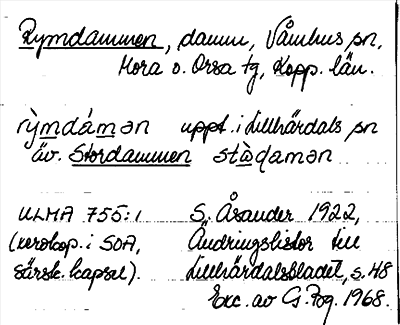 Rymdammen, damm, Våmhus sn,
Mora o. Orsa tg, Kopp. län.
rỳmdámən uppt. i Lillhärdals sn
äv. Stordammen stòdamən
ULMA 755:1 S. Åsander 1922,
(xerokop. i SOA, Ändringslistor till
särsk. kapsel). Lillhärdalsbladet, s. 48
Exc. av G. Pog. 1968.